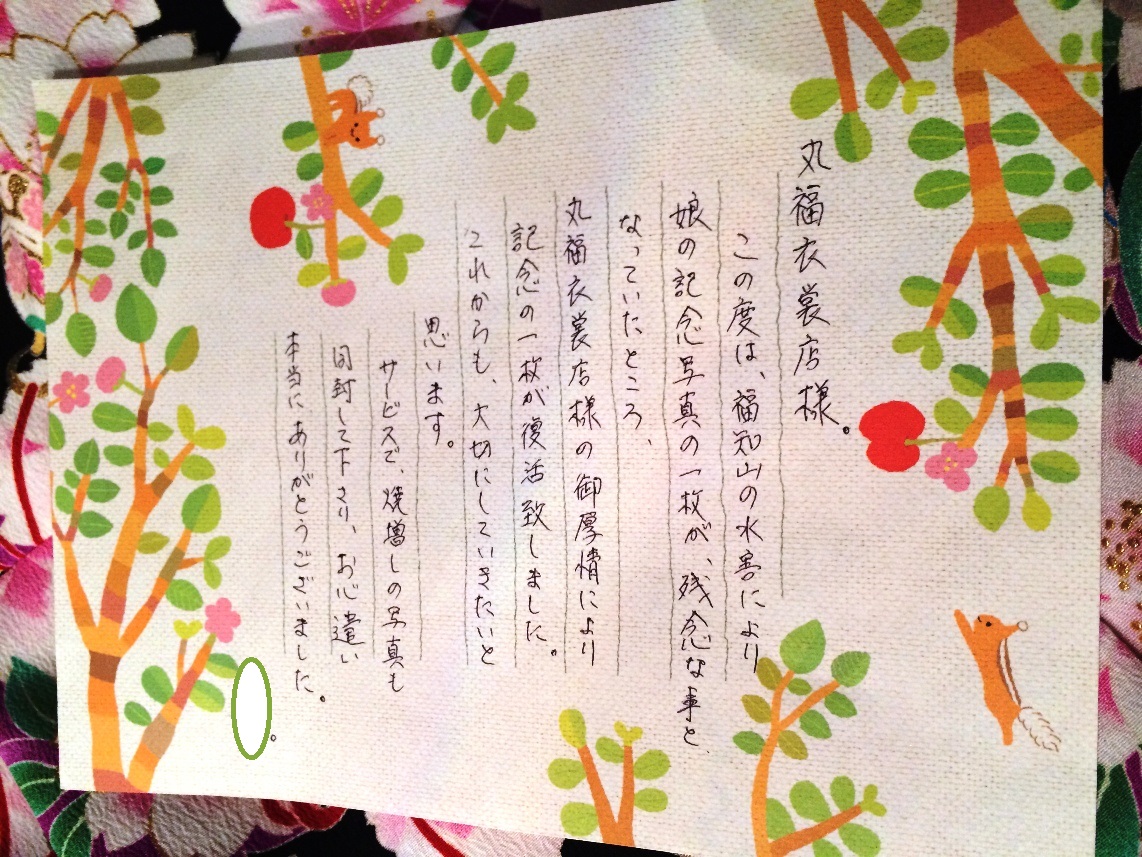 丸福衣裳店様。
この度は、福知山の水害により
娘の記念写真の一枚が、残念な事と、
なっていたところ、
丸福衣裳店様の御厚情により
記念の一枚が復活致しました。
これからも、大切にしていきたいと
思います。
サービスで、焼増しの写真も
同封して下さり、お心遣い
本当にありがとうございました。
。